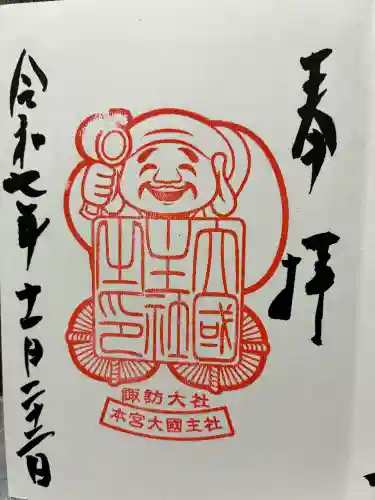 奉拝
大國
主社
之印
諏訪大社
本宮大國主社
令和七年十一月二十二日